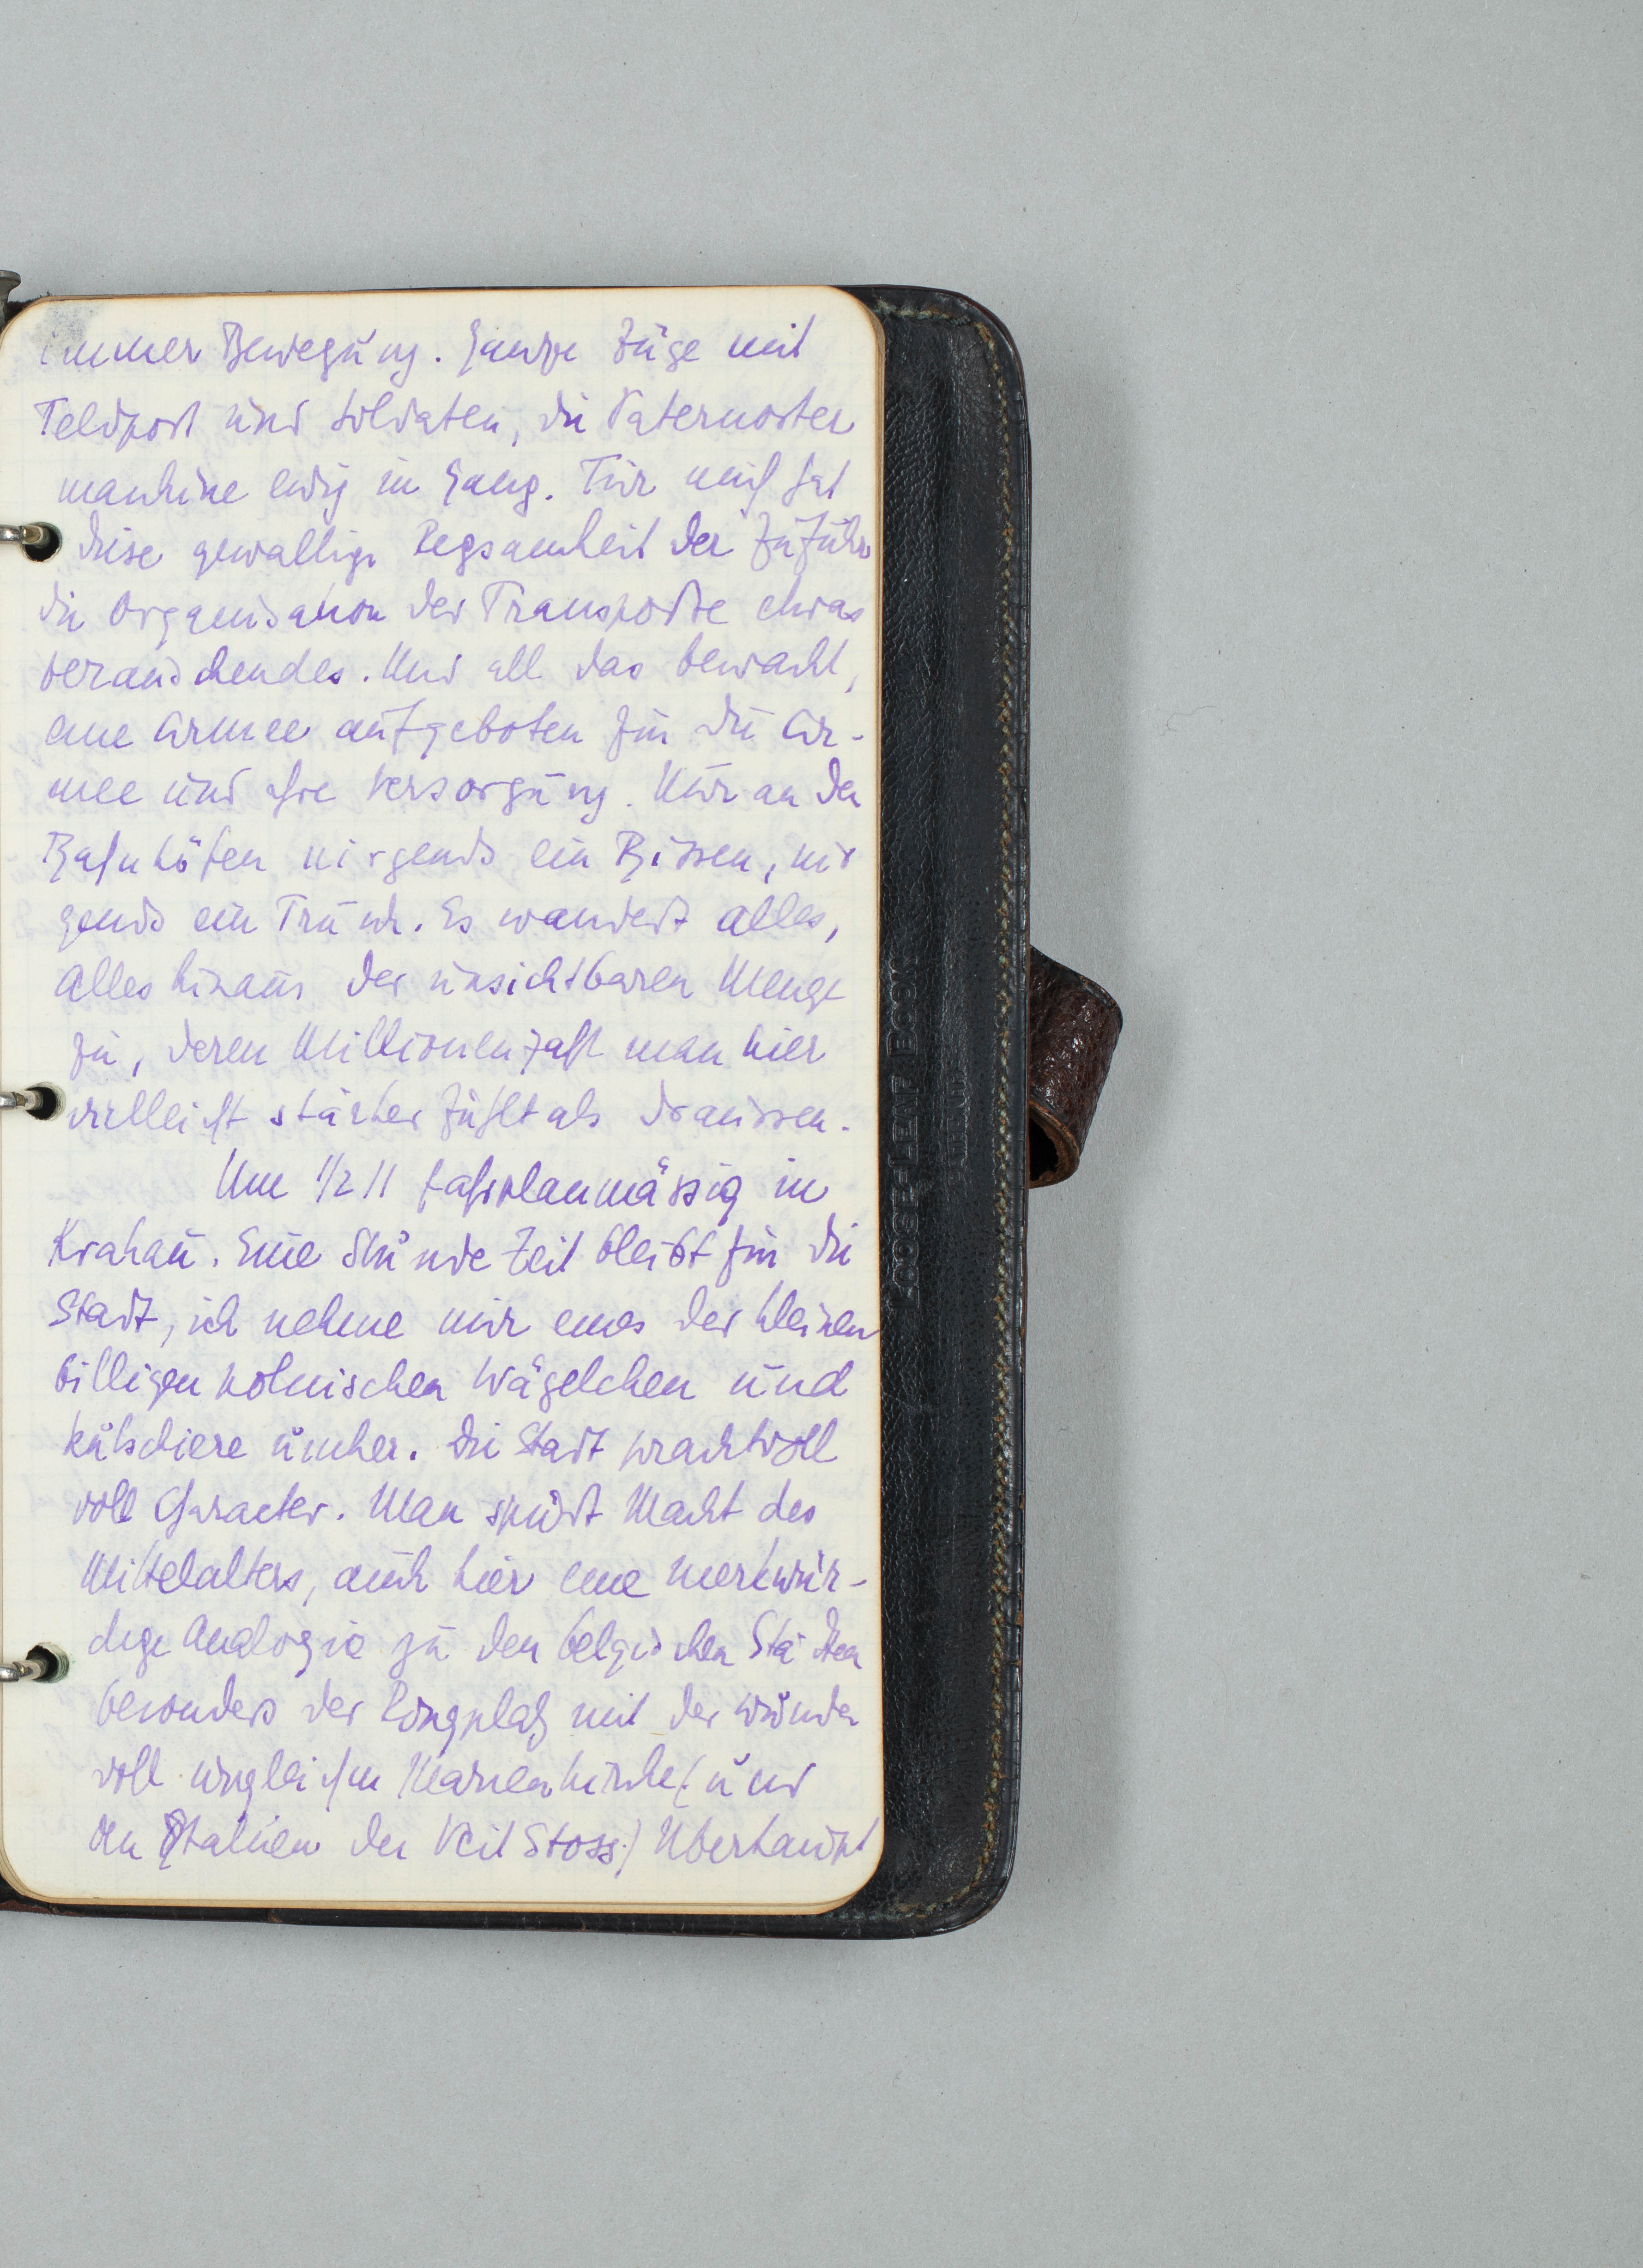 immer Bewegung. Ganze Züge mit
Feldpost und Soldaten, die Paternoster
maschine ewig in Gang. Für mich hat
diese gewaltige Regsamkeit der Zufuhr
die Organisation der Transporte etwas
berauschendes. Und all das bewacht,
eine Armee aufgeboten für die Ar-
mee und ihre Versorgung. Nur an den
Bahnhöfen nirgends ein Bissen, nir
gends ein Trunk. Es wandert alles,
alles hinaus der unsichtbaren Menge
zu, deren Millionenzahl man hier
vielleicht stärker fühlt als draussen.
Um 1/2 11 fahrplanmässig in
Krakau. Eine Stunde Zeit bleibt für die
Stadt, ich nehme mir eines der kleinen
billigen polnischen Wägelchen und
kutschiere umher. Die Stadt prachtvoll
voll Character. Man spürt Macht des
Mittelalters, auch hier eine merkwür-
dige Analogie zu den belgischen Städten
besonders der Ringplatz mit der wunder
voll ungleichen Marienkirche (und
den Statuen des Veit Stoss.) Überhaupt
LOOSE-LEAF BOOK